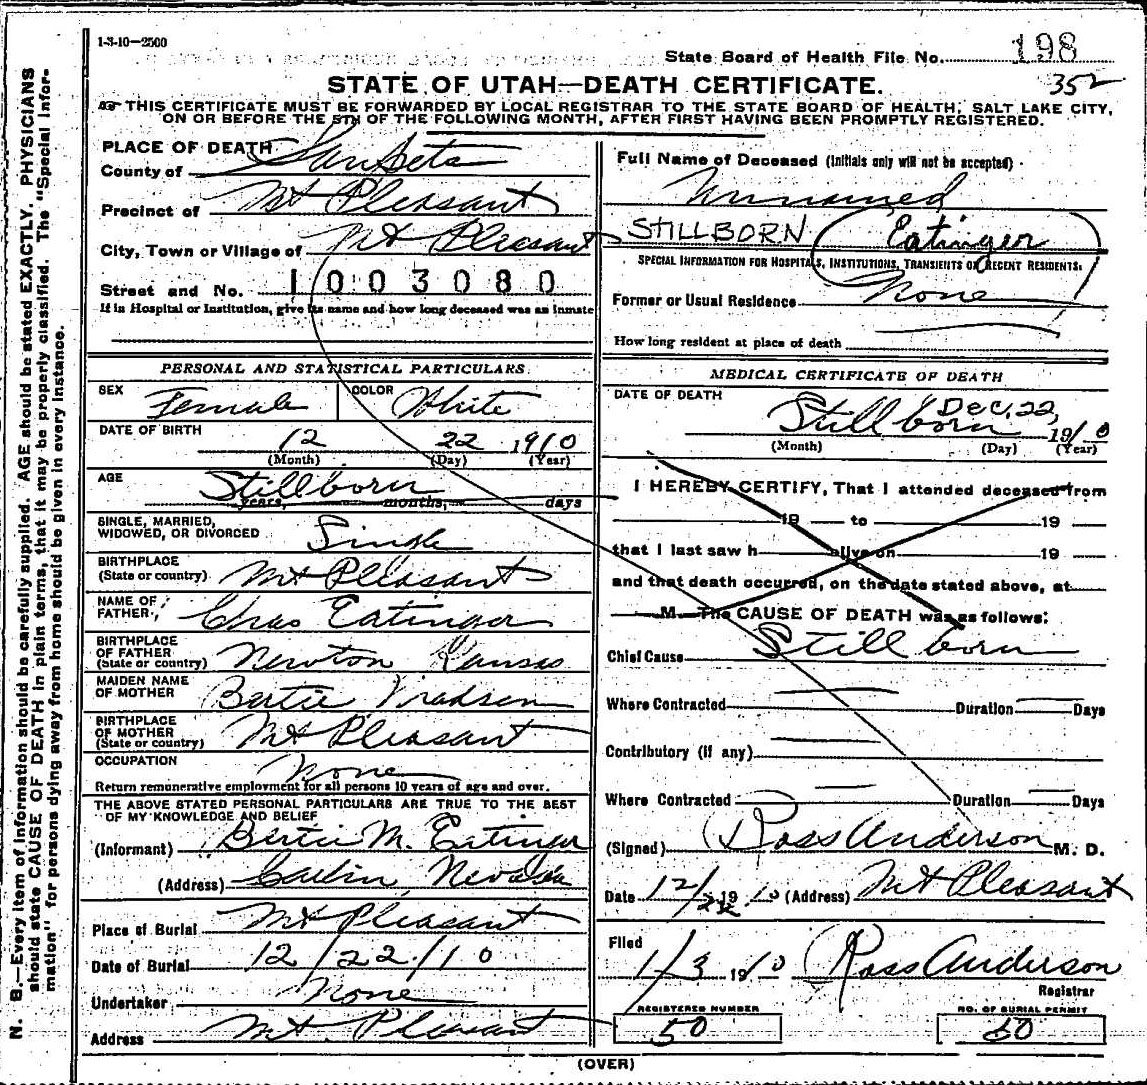 1-3-10—2500
State Board of Health File No. 198
352
STATE OF UTAH—DEATH CERTIFICATE.
THIS CERTIFICATE MUST BE FORWARDED BY LOCAL REGISTRAR TO THE STATE BOARD OF HEALTH, SALT LAKE CITY,
ON OR BEFORE THE 5TH OF THE FOLLOWING MONTH, AFTER FIRST HAVING BEEN PROMPTLY REGISTERED.
PLACE OF DEATH
County of SanPete
Precinct of Mt Pleasant
City, Town or Village of Mt Pleasant
Street and No. 1003080
If in Hospital or Institution, give its name and how long deceased was an inmate
Full Name of Deceased (Initials only will not be accepted)
Unnamed
STILLBORN Eatinger
SPECIAL INFORMATION FOR HOSPITALS, INSTITUTIONS, TRANSIENTS OR RECENT RESIDENTS.
Former or Usual Residence None
How long resident at place of death
PERSONAL AND STATISTICAL PARTICULARS.
SEX Female COLOR White
DATE OF BIRTH 12 22 1910
(Month) (Day) (Year)
AGE Stillborn
years, months, days
SINGLE, MARRIED,
WIDOWED, OR DIVORCED Single
BIRTHPLACE
(State or country) Mt Pleasant
NAME OF
FATHER, Chas Eatinger
BIRTHPLACE
OF FATHER
(State or country) Newton Kansas
MAIDEN NAME
OF MOTHER Bertie Madsen
BIRTHPLACE
OF MOTHER
(State or country) Mt Pleasant
OCCUPATION None
Return remunerative employment for all persons 10 years of age and over.
THE ABOVE STATED PERSONAL PARTICULARS ARE TRUE TO THE BEST
OF MY KNOWLEDGE AND BELIEF
(Informant) Bertie M. Eatinger
(Address) Carlin, Nevada
Place of Burial Mt Pleasant
Date of Burial 12/22/10
Undertaker None
Address Mt Pleasant
MEDICAL CERTIFICATE OF DEATH
DATE OF DEATH
Stillborn Dec. 22, 1910
(Month) (Day) (Year)
I HEREBY CERTIFY, That I attended deceased from
19 to 19
that I last saw h alive on 19
and that death occurred, on the date stated above, at
M. The CAUSE OF DEATH was as follows:
Chief Cause Still born
Where Contracted Duration Days
Contributory (if any)
Where Contracted Duration Days
(Signed) Ross Anderson M. D.
Date 12/22 1910 (Address) Mt Pleasant
Filed
1/3 1910 Ross Anderson
Registrar
REGISTERED NUMBER
50
NO. OF BURIAL PERMIT
50
(OVER)
N. B.—Every item of information should be carefully supplied. AGE should be stated EXACTLY. PHYSICIANS
should state CAUSE OF DEATH in plain terms, that it may be properly classified. The "Special Infor-
mation" for persons dying away from home should be given in every instance.